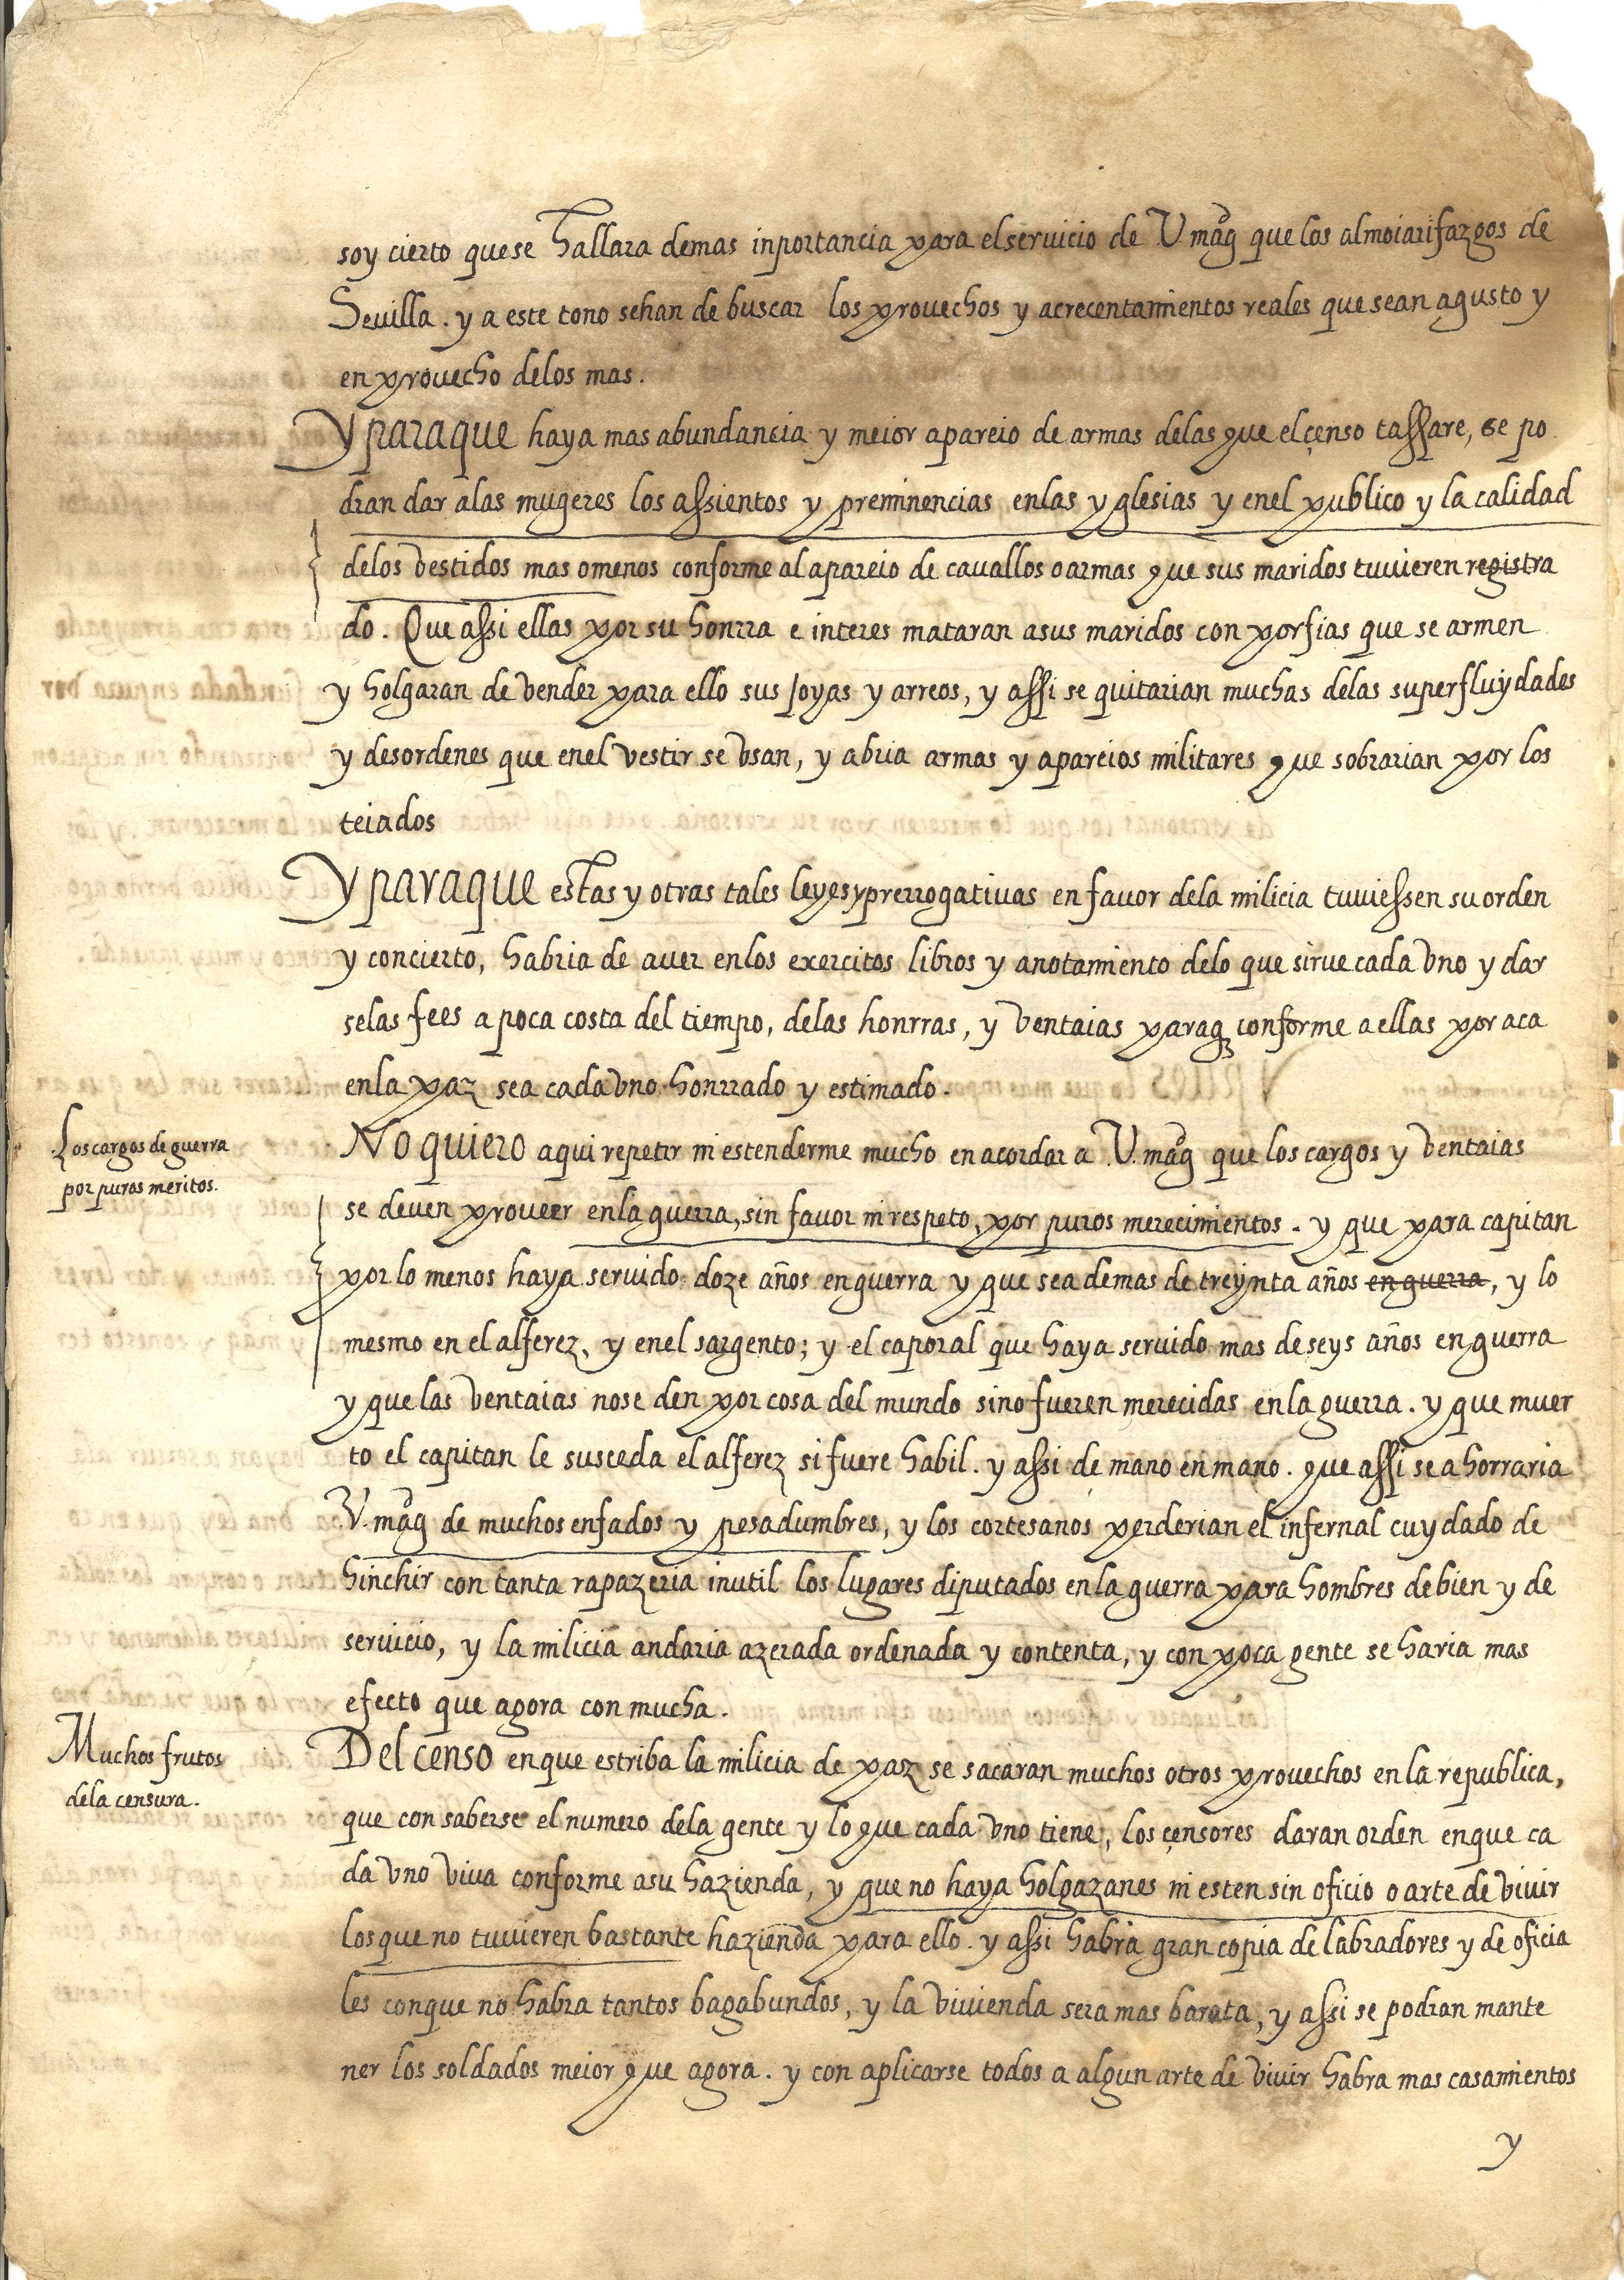 soy cierto que se hallara de mas inportancia para el seruicio de V. mag que los almoiarifazgos de
Seuilla. y a este tono se han de buscar los prouechos y acrecentamientos reales que sean a gusto y
en prouecho delos mas.
Y paraque haya mas abundancia y meior apareio de armas delas que el çenso tassare, se po
dran dar alas mugeres los assientos y preminencias enlas yglesias y enel publico y la calidad
delos vestidos mas o menos conforme al apareio de cauallos o armas que sus maridos tuuieren registra
do. Que assi ellas por su honrra e interes mataran a sus maridos con porfias que se armen
y holgaran de vender para ello sus joyas y arreos, y assi se quitarian muchas delas superfluydades
y desordenes que enel vestir se vsan, y abria armas y apareios militares que sobrarian por los
teiados
Y paraque estas y otras tales leyes y prerrogativas en fauor dela milicia tuuiessen su orden
y concierto, habria de auer enlos exercitos libros y anotamiento delo que sirue cada vno y dar
selas fees a poca costa del tiempo, delas honrras, y ventaias paraq conforme a ellas por aca
enla paz sea cada vno honrrado y estimado.
Los cargos de guerra
por puros meritos.
No quiero aqui repetir ni estenderme mucho en acordar a V. mag que los cargos y ventaias
se deven proveer enla guerra, sin favor ni respeto, por puros merecimientos. y que para capitan
por lo menos haya seruido doze años en guerra y que sea demas de treynta años en guerra, y lo
mesmo en el alferez, y enel sargento; y el caporal que haya seruido mas de seys años en guerra
y que las ventaias no se den por cosa del mundo sino fueren merecidas enla guerra. y que muer
to el capitan le susceda el alferez si fuere habil. y assi de mano en mano. que assi se ahorraria
V. mag de muchos enfados y pesadumbres, y los cortesanos perderian el infernal cuydado de
hinchir con tanta rapazeria inutil los lugares diputados en la guerra para hombres de bien y de
seruicio, y la milicia andaria azerada ordenada y contenta, y con poca gente se haria mas
efecto que agora con mucha.
Muchos frutos
dela censura.
Del censo enque estriba la milicia de paz se sacaran muchos otros prouechos en la republica,
que con saberse el numero dela gente y lo que cada vno tiene, los çensores daran orden enque ca
da vno viua conforme asu hazienda, y que no haya holgazanes ni esten sin oficio o arte de viuir
los que no tuuieren bastante hazienda para ello. y assi habra gran copia de labradores y de oficia
les conque no habra tantos bagabundos, y la viuienda sera mas barata, y assi se podran mante
ner los soldados meior que agora. y con aplicarse todos a algun arte de viuir habra mas casamientos
y